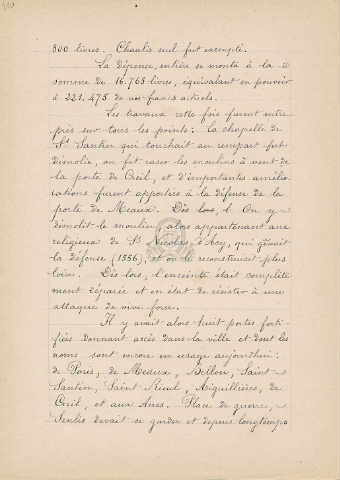 800 livres. Chaalis seul fut exempté.
La dépense entière se monta à la
somme de 16.768 livres, équivalant en pouvoir
à 221.475 de nos francs actuels.
Les travaux cette fois furent entre
pris sur tous les points; la chapelle de
St Santin qui touchait au rempart fut
démolie, on fit raser les moulins à vent de
la porte de Creil, et d'importantes amélio
rations furent apportées à la défense de la
porte de Meaux. Dès lors, l. On y
démolit le moulin, alors appartenant aux
religieux de St Nicolas d'Acy, qui gênait
la défense (1556) et on le reconstruisit plus
loin. Dès lors, l'enceinte était complète
ment réparée et en état de résister à une
attaque de vive force.
Il y avait alors huit portes forti-
fiées donnant accès dans la ville et dont les
noms sont encore en usage aujourd'hui:
de Paris, de Meaux, Bellon, Saint
Santin, Saint Rieul, Aiguillières, de
Creil, et aux Anes. Place de guerre,
Senlis devait se garder et depuis longtemps